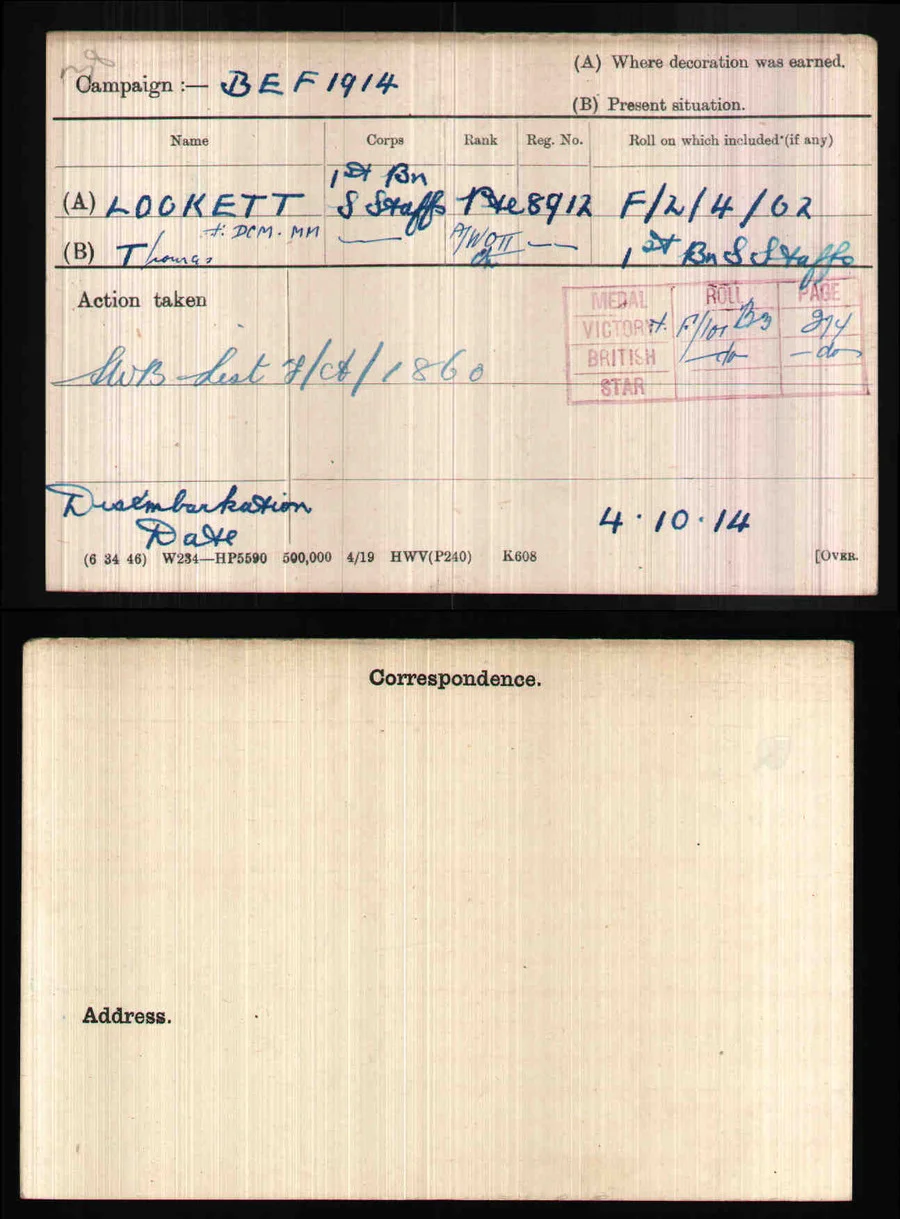 Campaign :— BEF 1914
(A) Where decoration was earned.
(B) Present situation.
Name Corps Rank Reg. No. Roll on which included (if any)
1st Bn
(A) LOCKETT S Staffs Pte 8912 F/2/4/02
+ DCM. MM
(B) Thomas — A/WOII — 1st Bn S Staffs
Action taken
MEDAL ROLL PAGE
VICTORY F/101 B3 274
BRITISH —do— —do—
STAR
SWB List F/Ct/1860
Disembarkation
Date 4.10.14
(6 34 46) W234—HP5590 500,000 4/19 HWV(P240) K608 [OVER.
Correspondence.
Address.